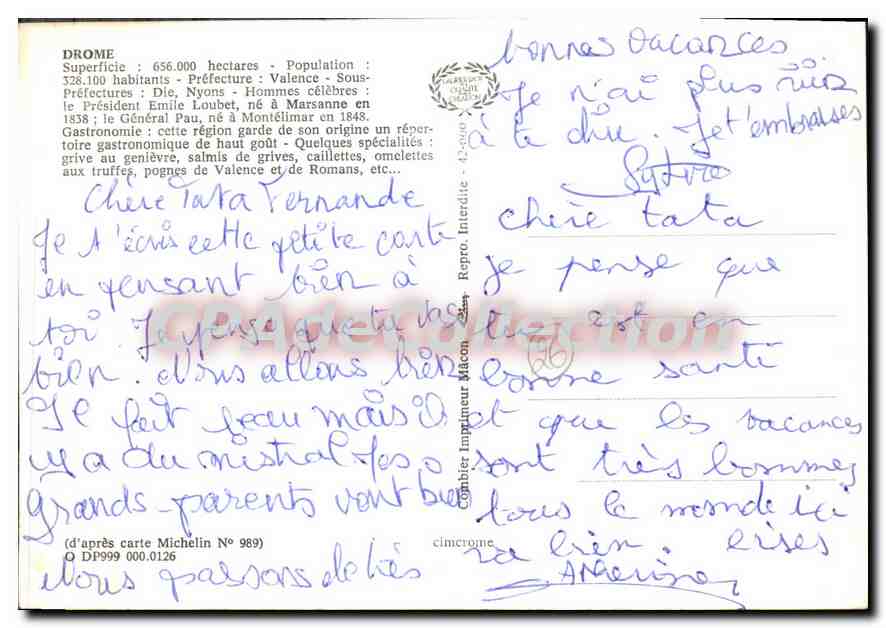 DROME
Superficie : 656.000 hectares - Population :
328.100 habitants - Préfecture : Valence - Sous-
Préfectures : Die, Nyons - Hommes célèbres :
le Président Emile Loubet, né à Marsanne en
1838 ; le Général Pau, né à Montélimar en 1848.
Gastronomie : cette région garde de son origine un réper-
toire gastronomique de haut goût - Quelques spécialités :
grive au genièvre, salmis de grives, caillettes, omelettes
aux truffes, pognes de Valence et de Romans, etc...
Chère Tata Fernande
Je t'écris cette petite carte
en pensant bien à
toi. Je pense que tu vas
bien. Nous allons bien
Il fait beau mais il
y a du mistral
grands-parents vont bien
(d'après carte Michelin N° 989)
O DP999 000.0126
Nous passons de très
bonnes vacances
Je n'ai plus rien
à te dire. Je t'embrasses
Sylvie
Combier Imprimeur Mâcon Repro. Interdite - 42-090
chère tata
je pense que
tu est en
bonne santé
et que les vacances
sont très bonnes
tous le monde ici
va bien.
cimcrome
26
CPAdeCollection